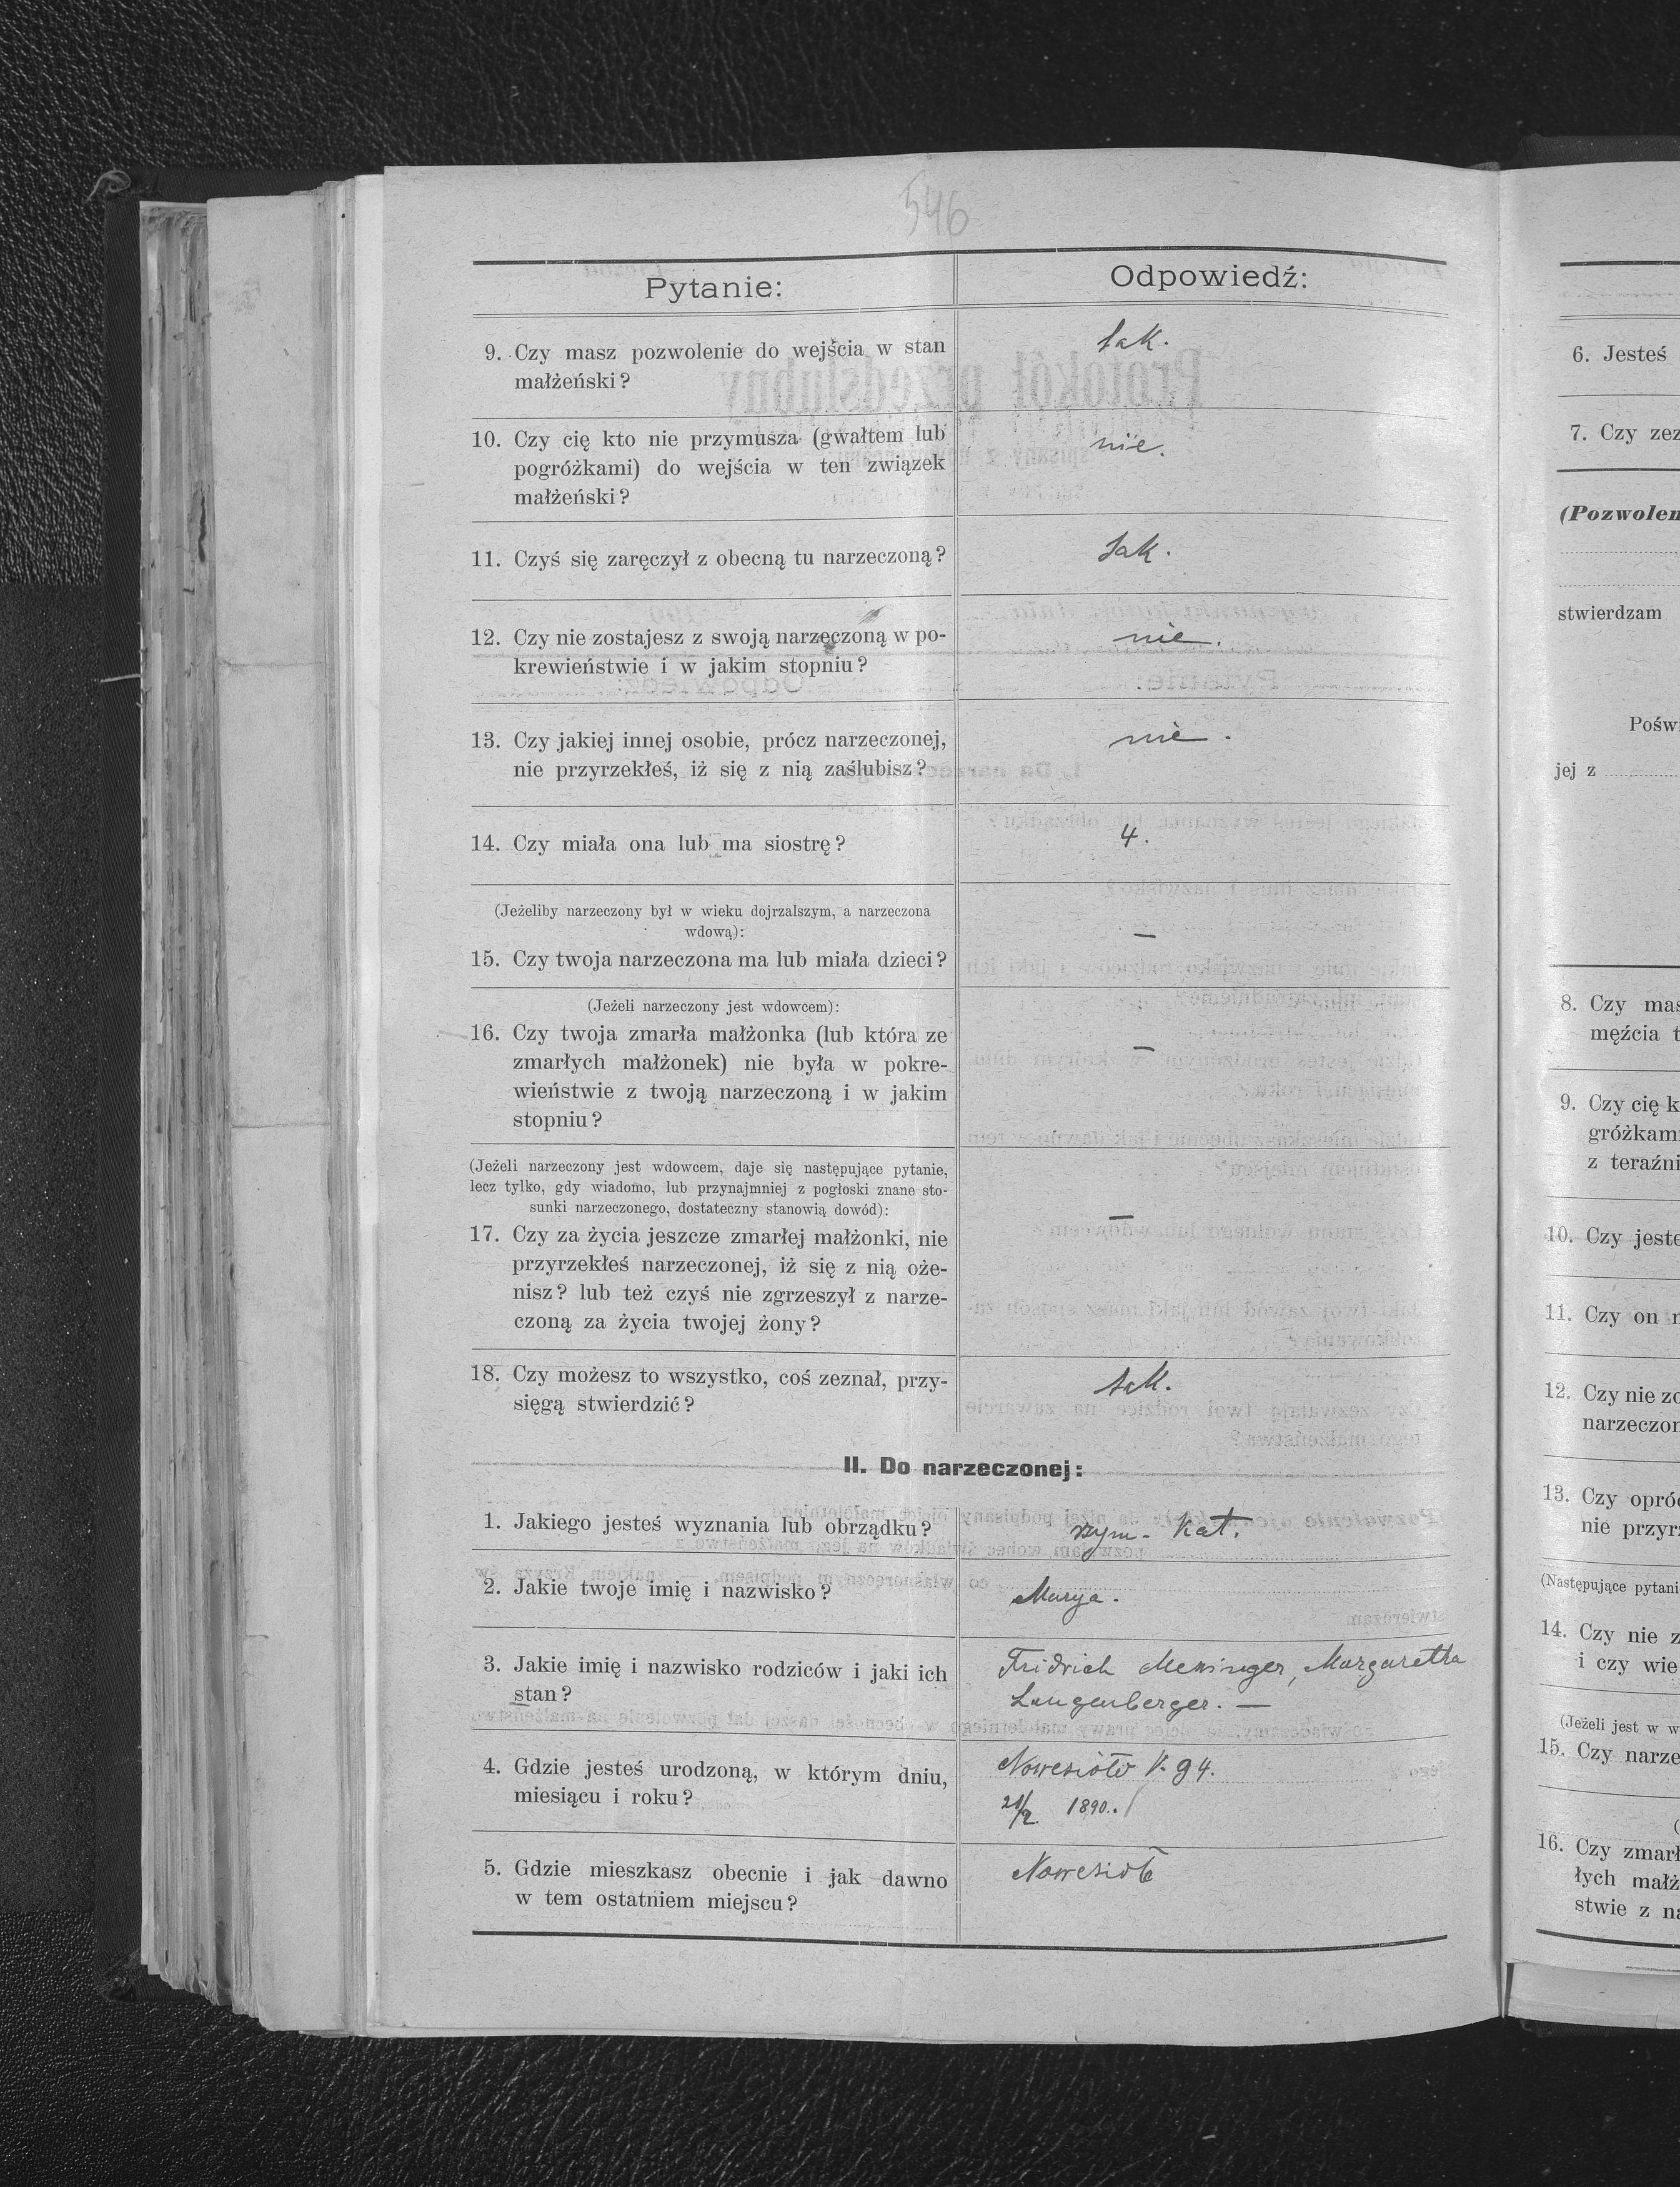 546
Pytanie:
Odpowiedź:
9. Czy masz pozwolenie do wejścia w stan
małżeński?
tak.
10. Czy cię kto nie przymusza (gwałtem lub
pogróżkami) do wejścia w ten związek
małżeński?
nie.
11. Czyś się zaręczył z obecną tu narzeczoną?
tak.
12. Czy nie zostajesz z swoją narzęczoną w po-
krewieństwie i w jakim stopniu?
nie.
13. Czy jakiej innej osobie, prócz narzeczonej,
nie przyrzekłeś, iż się z nią zaślubisz?
nie.
14. Czy miała ona lub ma siostrę?
4.
(Jeżeliby narzeczony był w wieku dojrzalszym, a narzeczona
wdową):
15. Czy twoja narzeczona ma lub miała dzieci?
—
(Jeżeli narzeczony jest wdowcem):
16. Czy twoja zmarła małżonka (lub która ze
zmarłych małżonek) nie była w pokre-
wieństwie z twoją narzeczoną i w jakim
stopniu?
—
(Jeżeli narzeczony jest wdowcem, daje się następujące pytanie,
lecz tylko, gdy wiadomo, lub przynajmniej z pogłoski znane sto-
sunki narzeczonego, dostateczny stanowią dowód):
17. Czy za życia jeszcze zmarłej małżonki, nie
przyrzekłeś narzeczonej, iż się z nią oże-
nisz? lub też czyś nie zgrzeszył z narze-
czoną za życia twojej żony?
—
18. Czy możesz to wszystko, coś zeznał, przy-
sięgą stwierdzić?
tak.
II. Do narzeczonej:
1. Jakiego jesteś wyznania lub obrządku?
rzym- kat.
2. Jakie twoje imię i nazwisko?
Marya.
3. Jakie imię i nazwisko rodziców i jaki ich
stan?
Fridrich Meninger, Margaretha
Langenberger. —
4. Gdzie jesteś urodzoną, w którym dniu,
miesiącu i roku?
Nowesioło 94.
21/2 1890.
5. Gdzie mieszkasz obecnie i jak dawno
w tem ostatniem miejscu?
Nowesioło
6. Jesteś
7. Czy zez
(Pozwolen
stwierdzam
Pośw
jej z
8. Czy mas
męźcia t
9. Czy cię k
gróżkam
z teraźni
10. Czy jeste
11. Czy on
12. Czy nie zo
narzeczon
13. Czy opró
nie przyr
(Następujące pytani
14. Czy nie z
i czy wie
(Jeżeli jest w w
15. Czy narze
(
16. Czy zmarł
łych małż
stwie z na